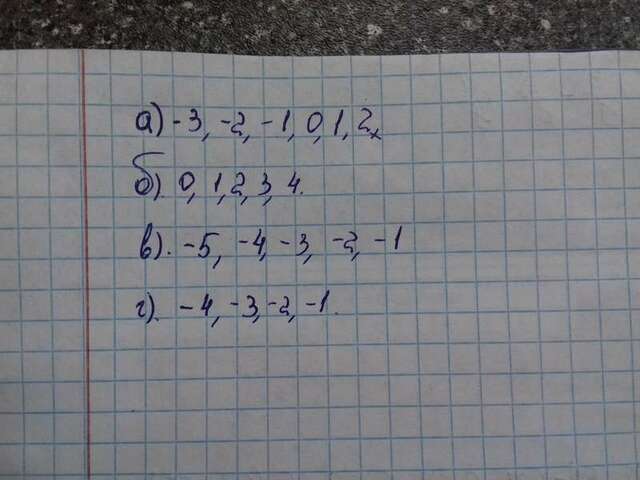 а) -3, -2, -1, 0, 1, 2,
б). 0, 1, 2, 3, 4.
в). -5, -4, -3, -2, -1
г). -4, -3, -2, -1.